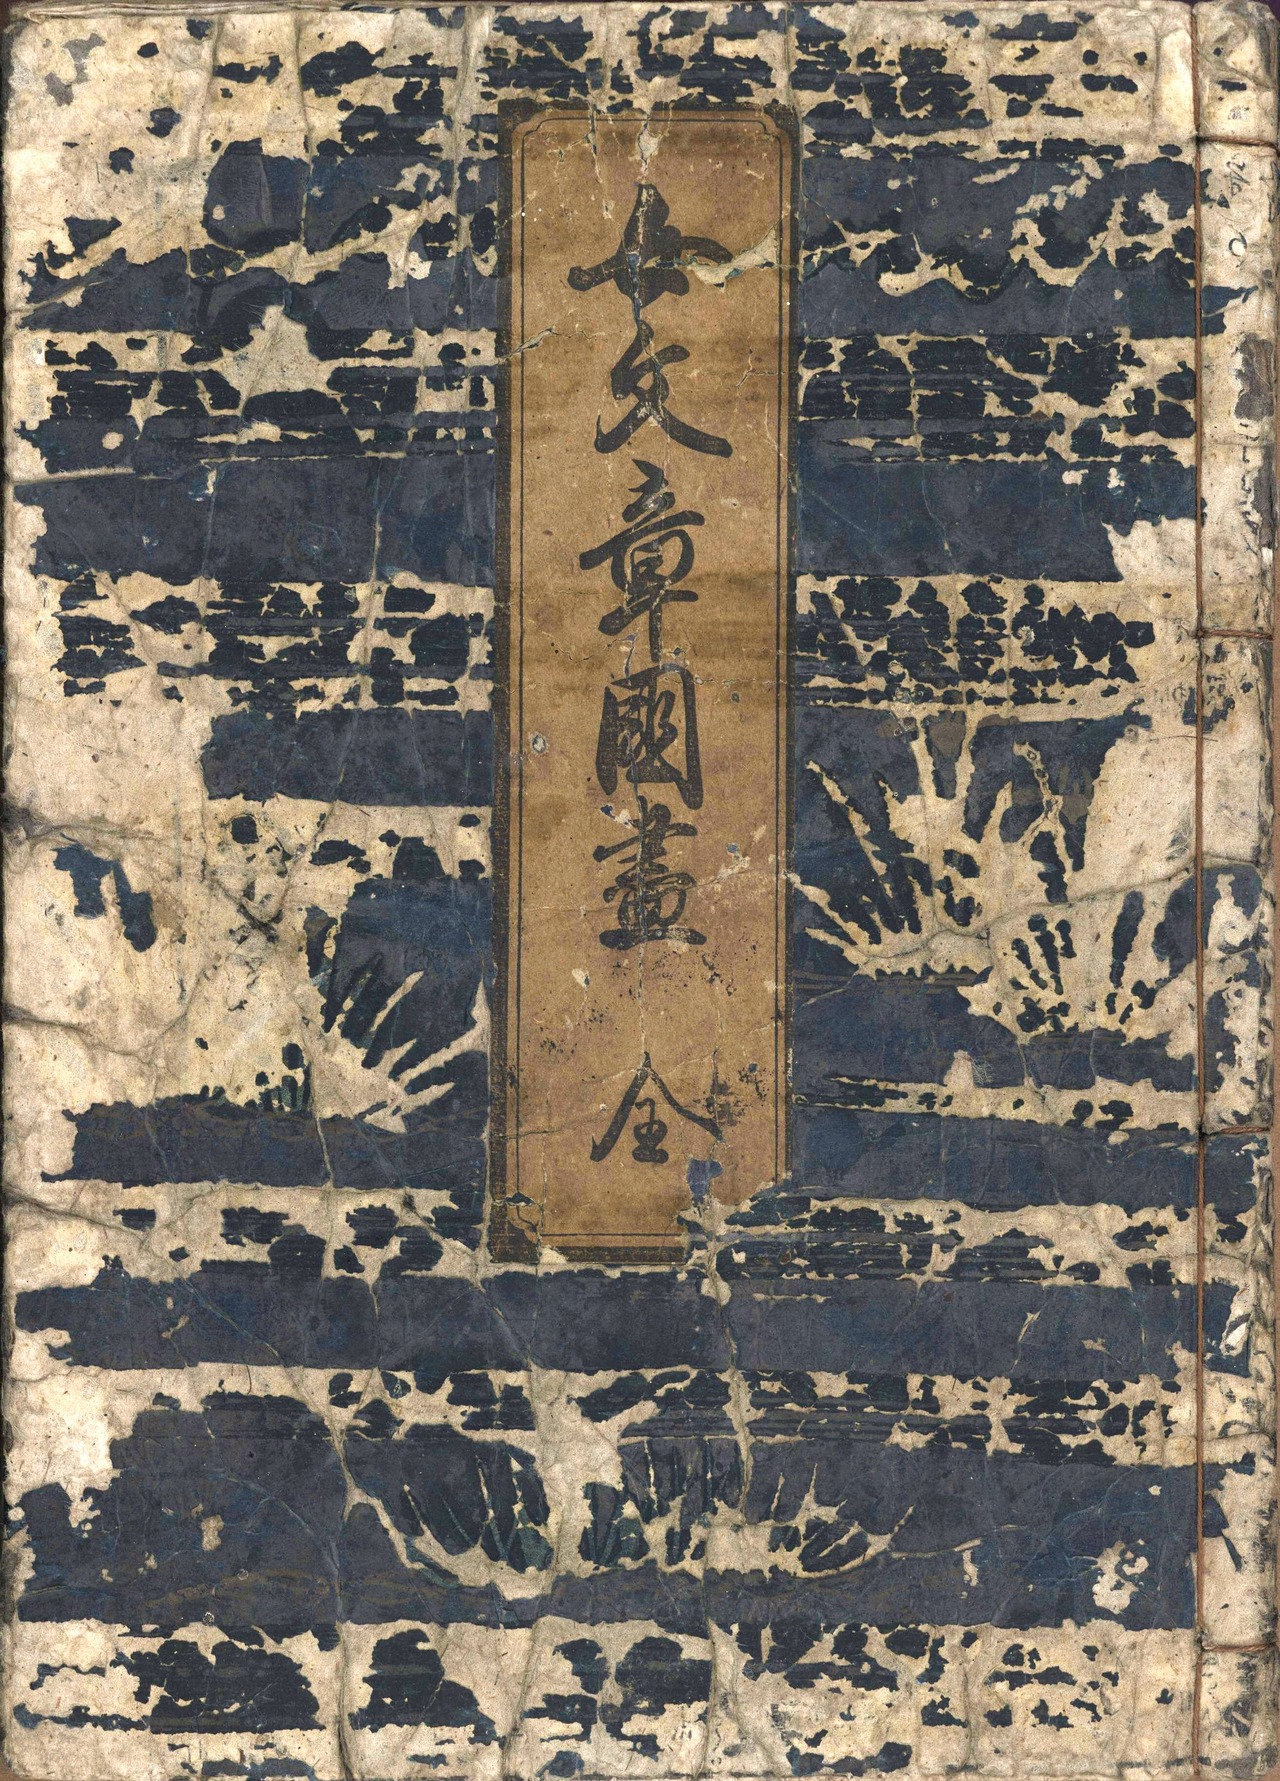 女文章國畫 全